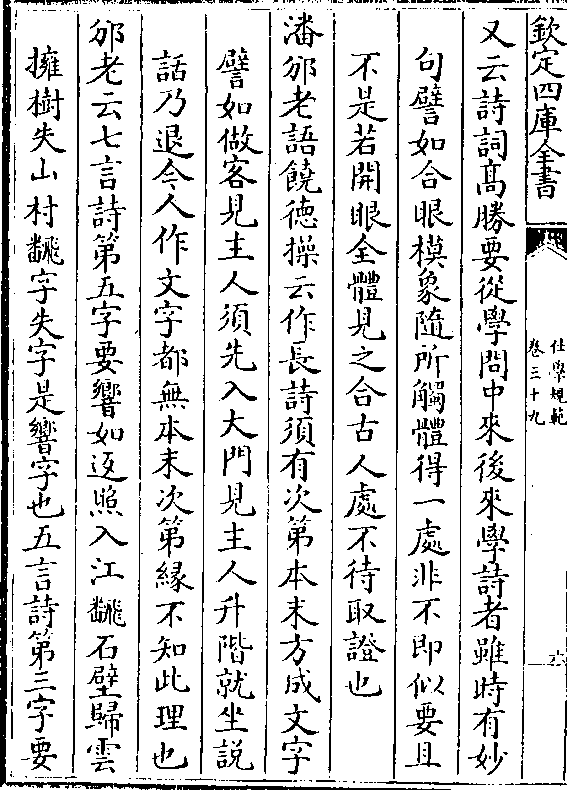 欽定四庫全書
仕學規範
卷三十九
六
又云詩詞髙勝要從學問中來後來學詩者雖時有妙
句譬如合眼模象隨所觸體得一處非不即似要且
不是若開眼全體見之合古人處不待取證也
潘邠老語饒德操云作長詩須有次第本末方成文字
譬如做客見主人須先入大門見主人升階就坐説
話乃退今人作文字都無本末次第緣不知此理也
邠老云七言詩第五字要響如返照入江飜石壁歸雲
擁樹失山村飜字失字是響字也五言詩第三字要